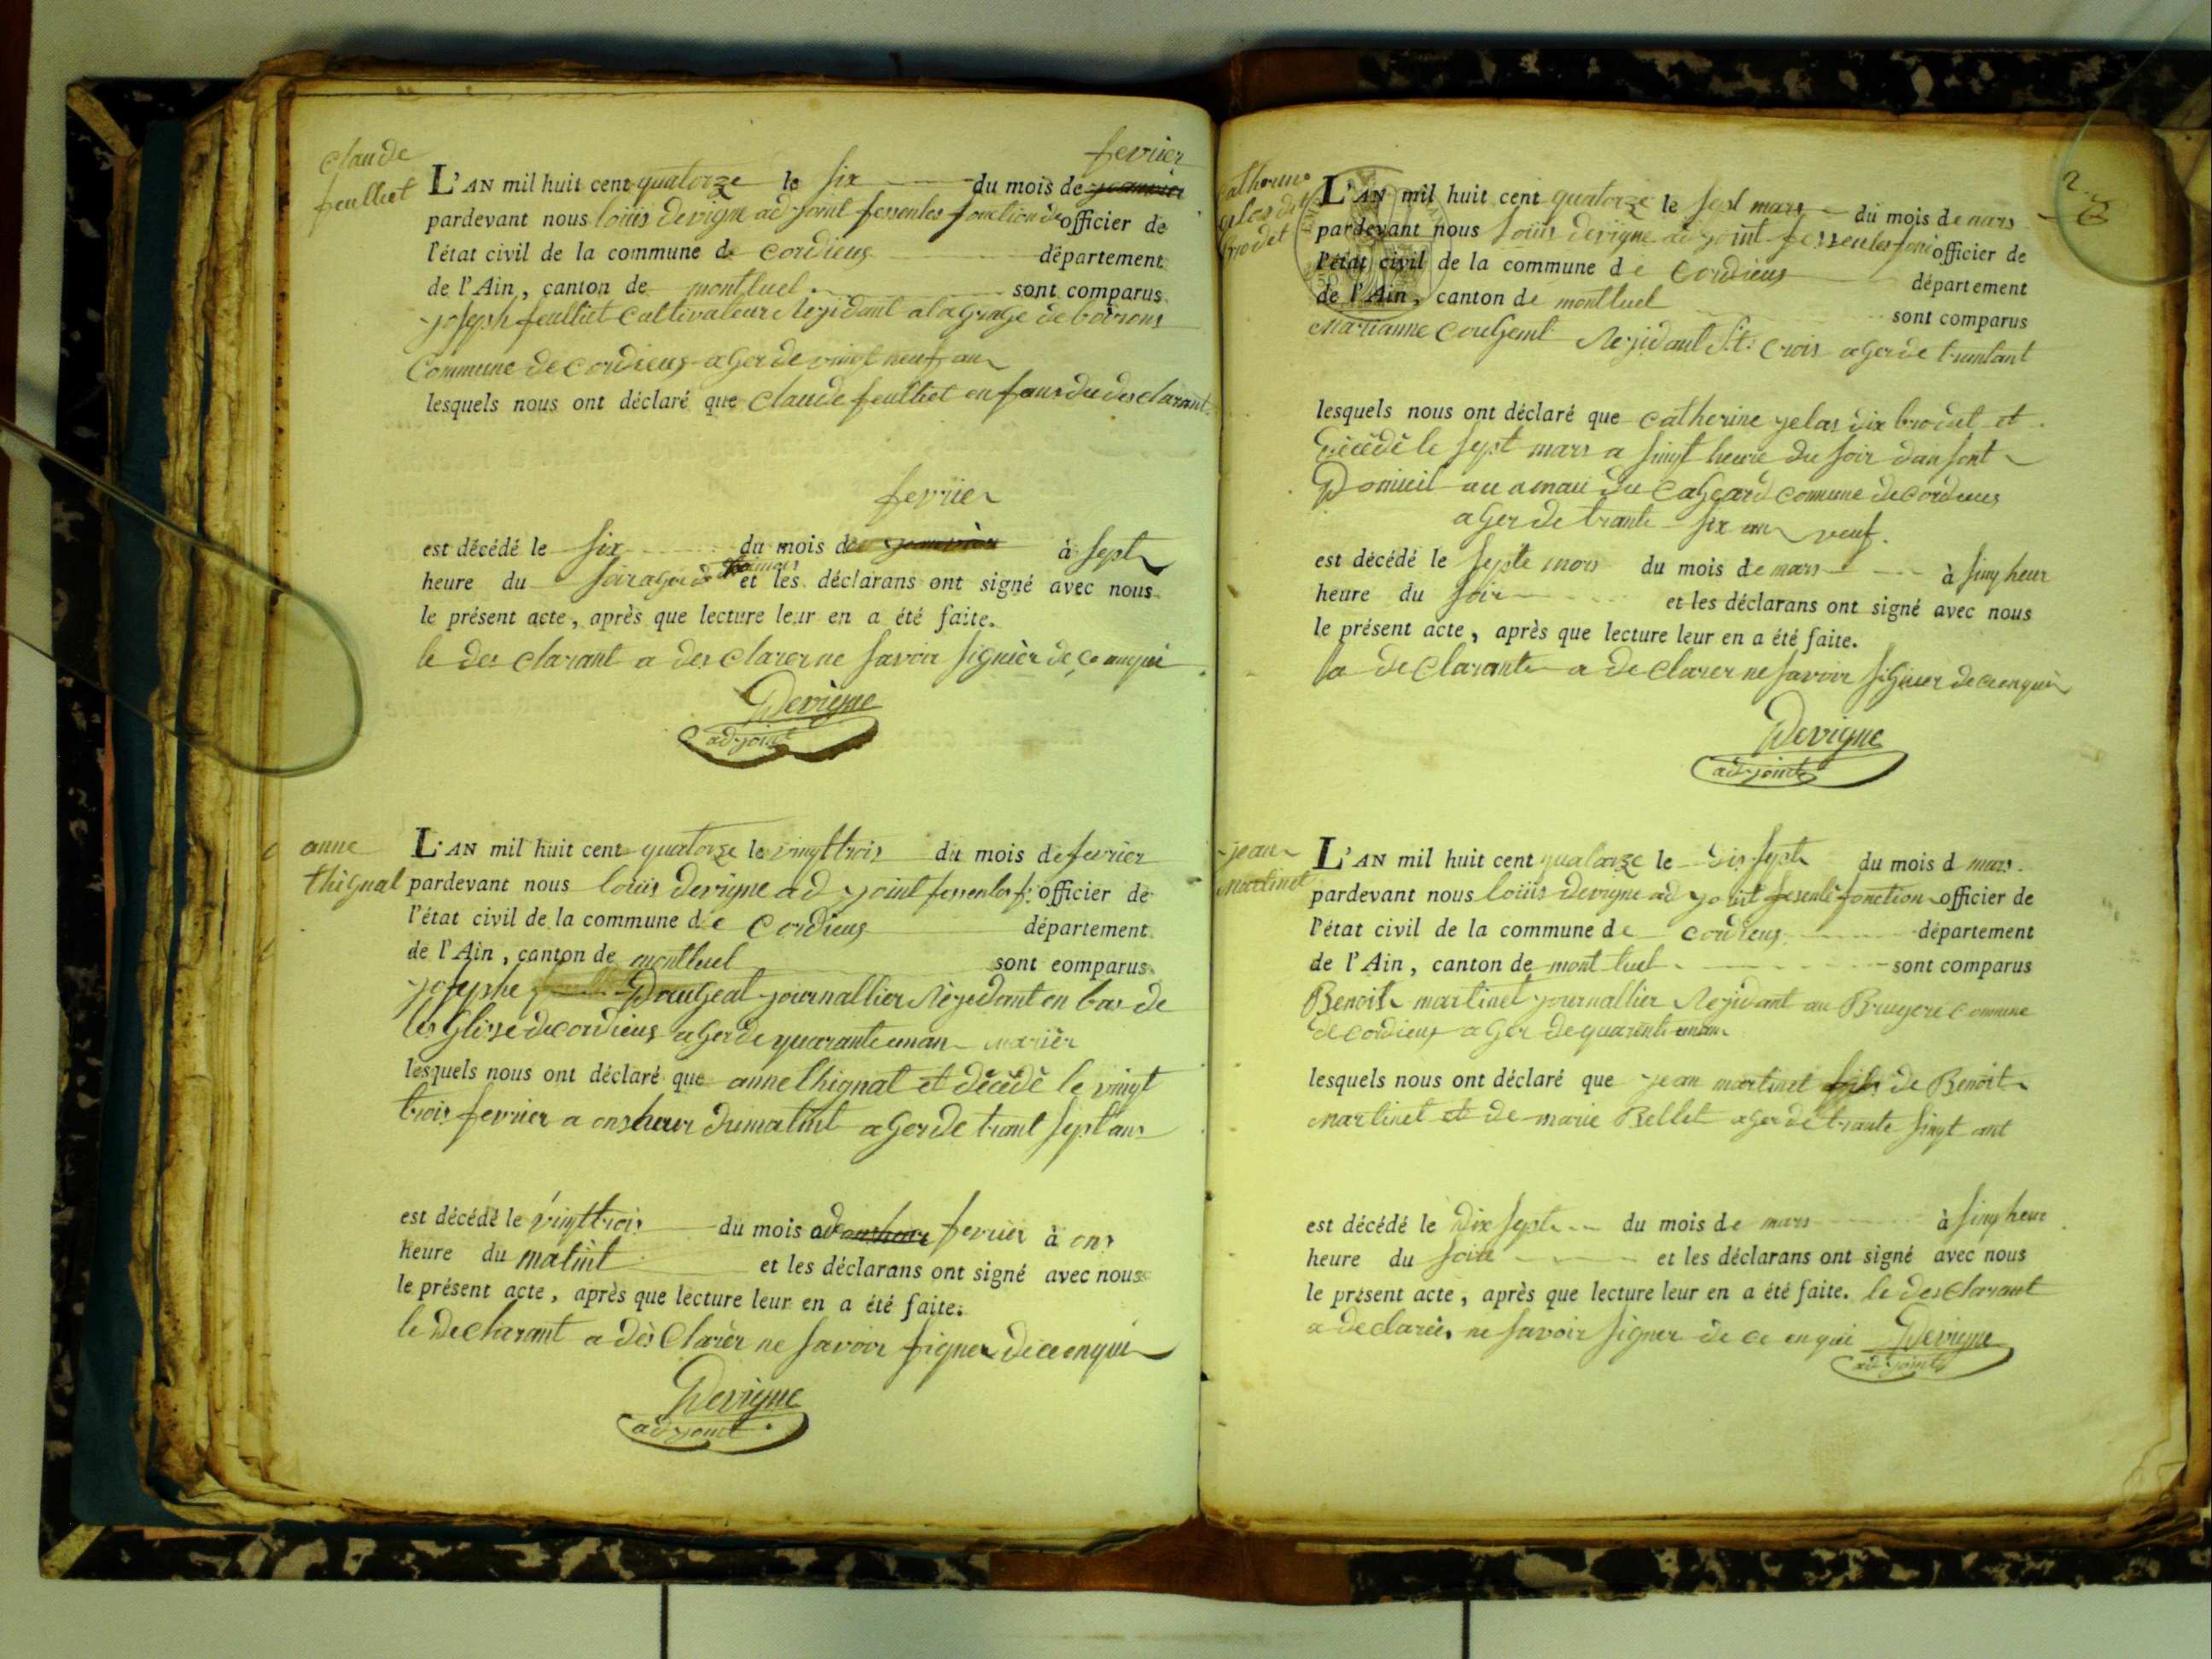 claude
feulliet
fevrier
L'AN mil huit cent quatorze le six du mois de janvier
pardevant nous loüis devigne adjoint fessentes fonction de officier de
l'état civil de la commune de cordieus département
de l'Ain, canton de montluel. sont comparus
joseph feulliet cultivateur Rezidant a la grage de
Commune de cordieus ager de vingt neuf an
lesquels nous ont déclaré que claude feulliet enfans du desclarant
fevrier
est décédé le six du mois de janvier à sept
heure du soir ager de et les déclarans ont signé avec nous
le présent acte, après que lecture leur en a été faite.
le des clarant a des clarer ne savoir signièr de ce anqui
Devigne
adjoint
anne
thignal
L'AN mil huit cent quatorze le vingt trois du mois de fevrier
pardevant nous loüis devigne adjoint fessentes f. officier de
l'état civil de la commune de cordieus département
de l'Ain, canton de montluel sont comparus
josephe Daugeat journallier Rèzidant en bas de
les Glise de cordieus ager de quarante un an marièr
lesquels nous ont déclaré que anne thignat et dècèdè le vingt
trois fevrier a ons heur du matint ager de trant sept ans
est décédé le vingt trois du mois fevrier à ons
heure du matint et les déclarans ont signé avec nous
le présent acte, après que lecture leur en a été faite.
le declarant a dès clarèr ne savoir signer de ce enqui
Devigne
adjoint
2
Catherine
gelas dit
brodet
L'AN mil huit cent quatorze le sept mars du mois de mars
pardevant nous loüis devigne adjoint fessentes fonc officier de
l'état civil de la commune de cordieus département
de l'Ain, canton de montluel sont comparus
Marianne Rezidant St. crois ager de trantant
lesquels nous ont déclaré que catherine gelas dix brodet et
dècèdè le sept mars a singt heure du soir dan sont
Domicil au amau du cageard comune de cordieus
ager de trante six an veuf.
est décédé le septe mois du mois de mars à sing heur
heure du soir et les déclarans ont signé avec nous
le présent acte, après que lecture leur en a été faite.
la de clarante a de clarer ne savoir signer de ce enqui
Devigne
adjoint
jean
martinet
L'AN mil huit cent quatorze le dix sept du mois d mars
pardevant nous loüis devigne adjoint fesente fonction officier de
l'état civil de la commune de cordieus département
de l'Ain, canton de mont luel sont comparus
Benoit martinet journallier Rezidant au Bruyere comune
de cordieus ager de quarente unan
lesquels nous ont déclaré que jean martinet fils de Benoit
martinet et de marie Bellet ager de trante singt ant
est décédé le dix sept du mois de mars à sing heur
heure du soire et les déclarans ont signé avec nous
le présent acte, après que lecture leur en a été faite. le des clarant
a declarèr ne savoir signer de ce en qui Devigne
adjoint